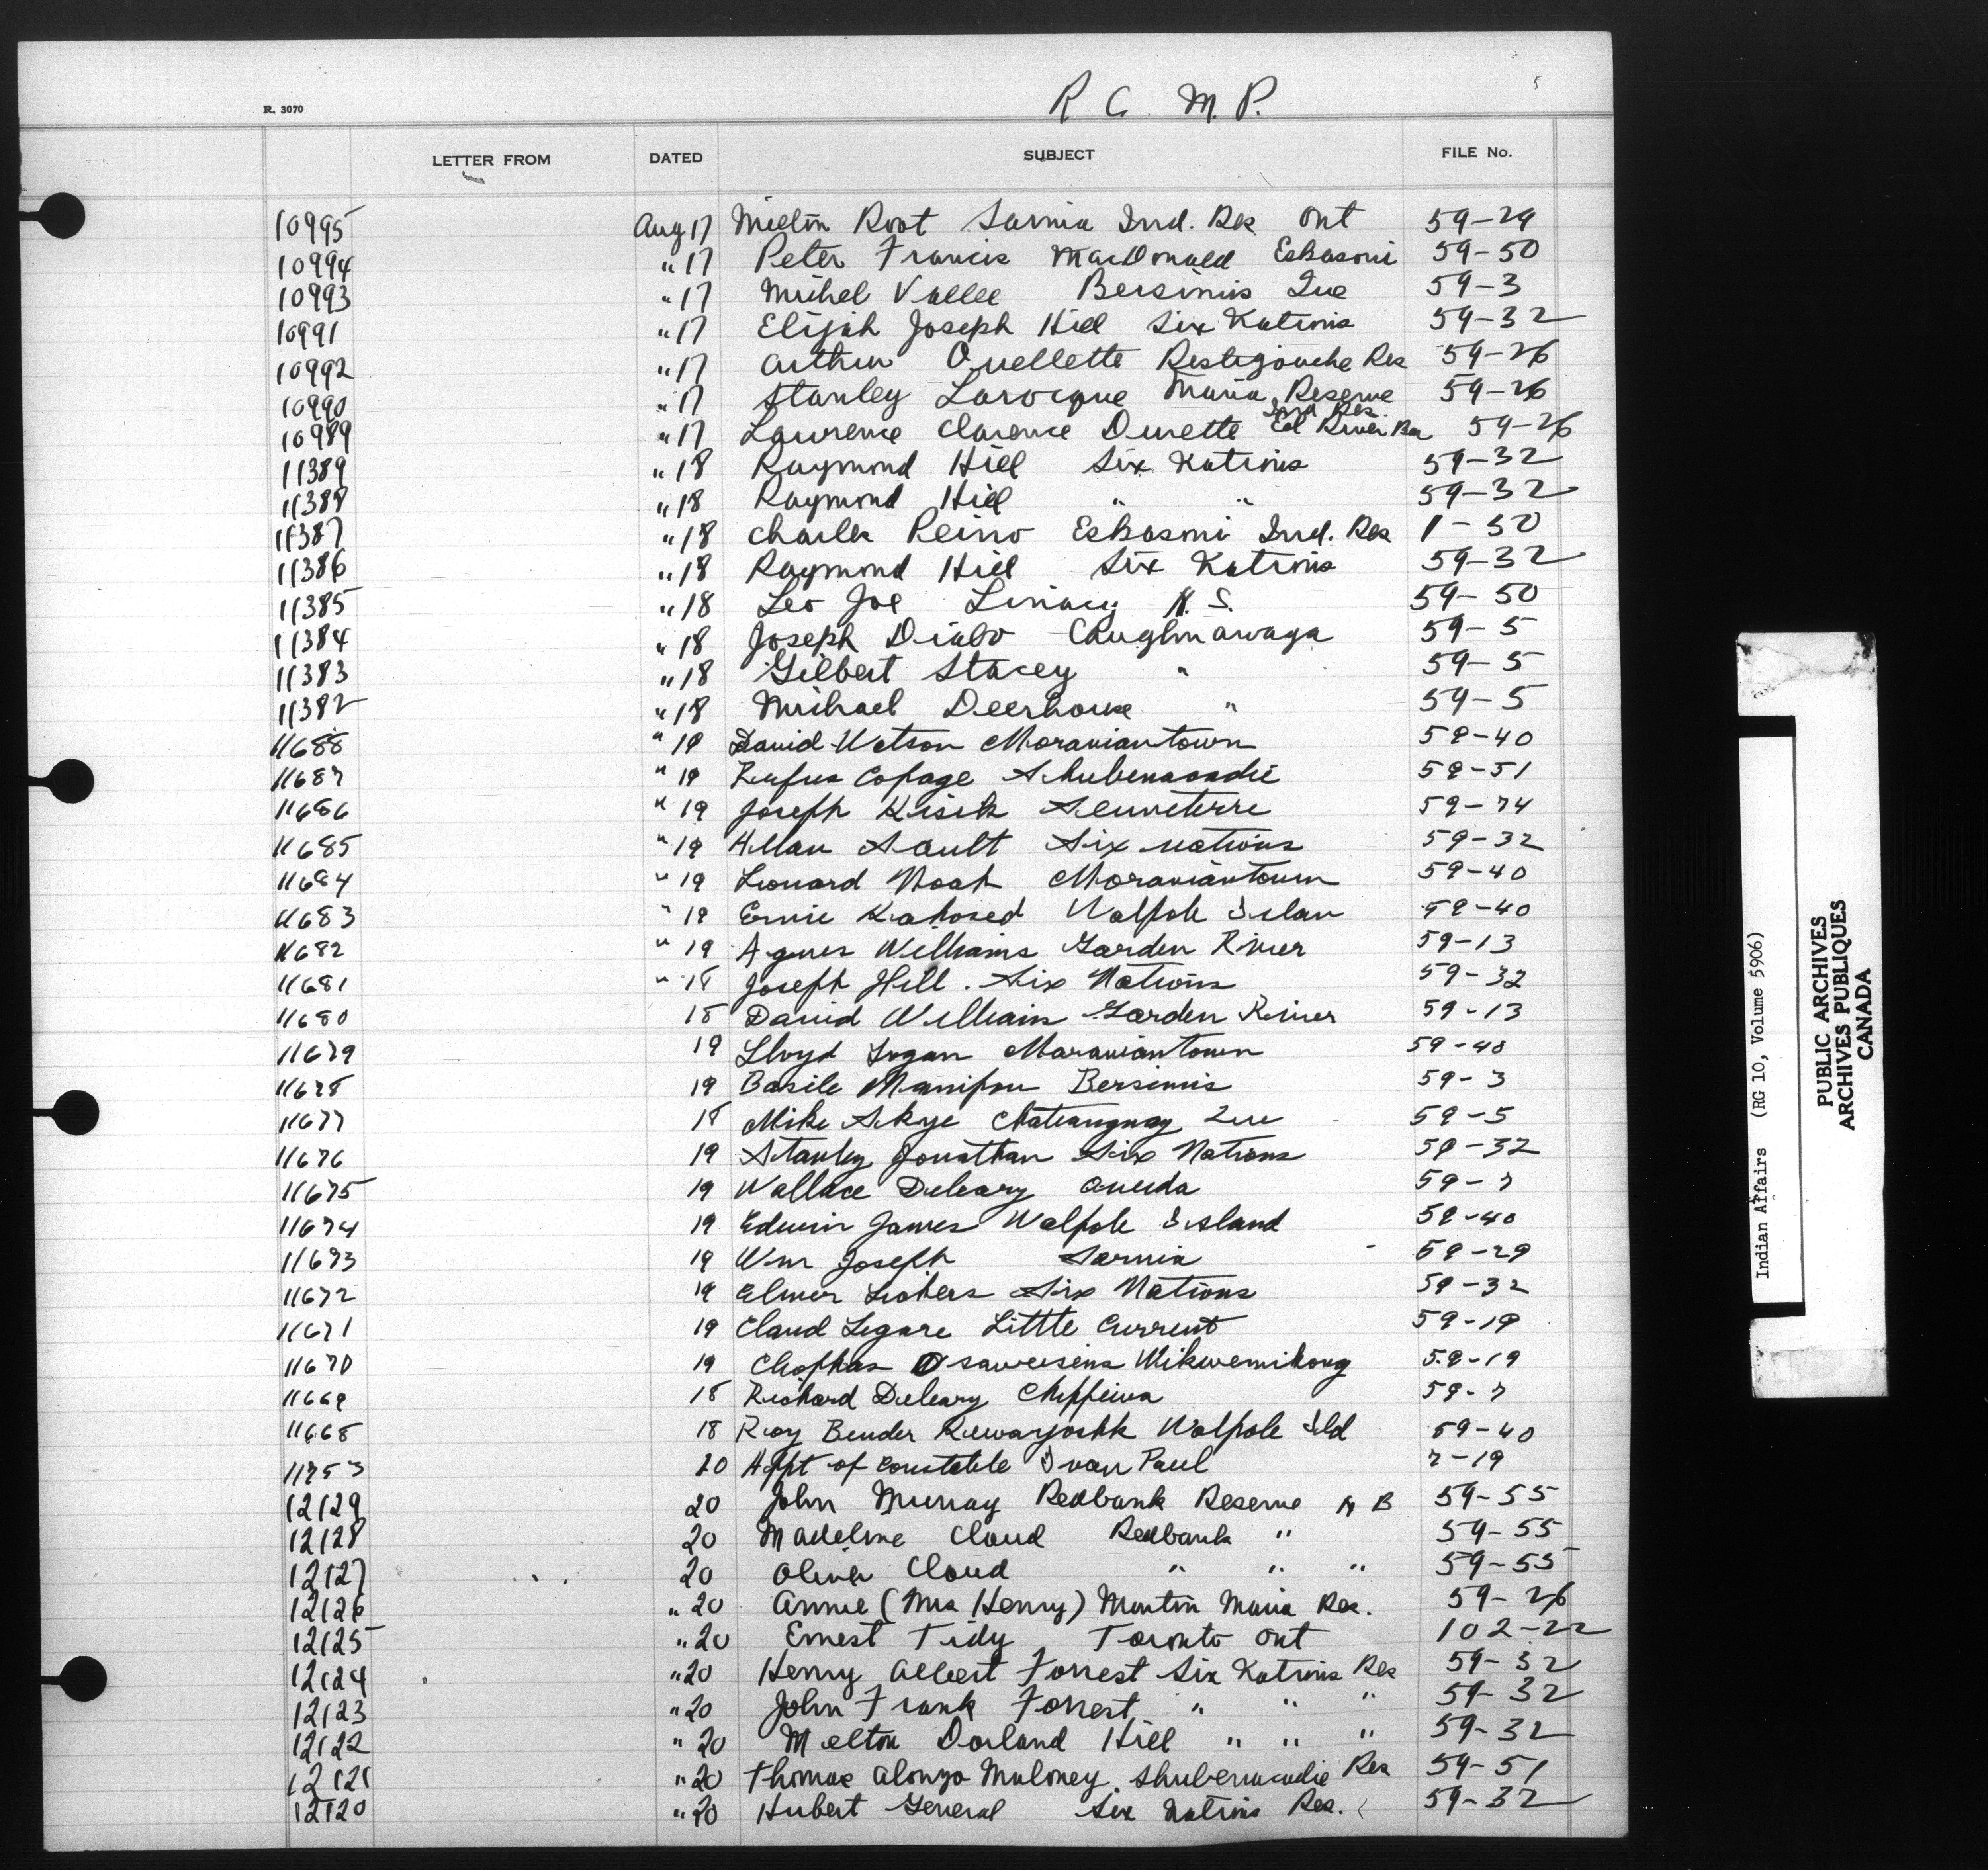 R. 3070
R C M. P.
5
LETTER FROM DATED SUBJECT FILE No.
10995 Aug 17 Milton Root Sarnia Ind. Res Ont 59-29
10994 " 17 Peter Francis MacDonald Eskasoni 59-50
10993 " 17 Michel Vallee Bersimis Que 59-3
10991 " 17 Elijah Joseph Hill Six Nations 59-32
10992 " 17 Arthur Ouellette Restigouche Res 59-26
10990 " 17 Stanley Larocque Maria Reserve 59-26
Ind Res.
10989 " 17 Lawrence Clarence Durette Eel River Bar 59-26
11389 " 18 Raymond Hill Six Nations 59-32
11388 " 18 Raymond Hill " " 59-32
11387 " 18 Charles Peiro Eskasoni Ind. Res 1-50
11386 " 18 Raymond Hill Six Nations 59-32
11385 " 18 Leo Joe Linacy N. S. 59-50
11384 " 18 Joseph Diabo Caughnawaga 59-5
11383 " 18 Gilbert Stacey " 59-5
11382 " 18 Michael Deerhouse " 59-5
11688 " 19 David Watson Moraviantown 59-40
11687 " 19 Rufus Copage Shubenacadie 59-51
11686 " 19 Joseph Kisik Senneterre 59-74
11685 " 19 Allan Sault Six nations 59-32
11684 " 19 Leonard Noah Moraviantown 59-40
11683 " 19 Ernie Kahosed Walpole Islan 59-40
11682 " 19 Agnes Williams Garden River 59-13
11681 " 18 Joseph Hill. Six Nations 59-32
11680 18 David Williams Garden River 59-13
11679 19 Lloyd Logan Moraviantown 59-40
11678 19 Basile Manipou Bersimis 59-3
11677 18 Mike Skye Chateauguay Que 59-5
11676 19 Stanley Jonathan Six Nations 59-32
11675 19 Wallace Deleary Oneida 59-7
11674 19 Edwin James Walpole Island 59-40
11673 19 Wm Joseph Sarnia - 59-29
11672 19 Elmer Lickers Six Nations 59-32
11671 19 Claud Legare Little Current 59-19
11670 19 Clophas Osawusins Wikwemikong 59-19
11669 18 Richard Deleary Chippewa 59-7
11668 18 Roy Bender Kewayoshk Walpole Ild 59-40
11753 20 Appt of Constable Ivan Paul 7-19
12129 20 John Murray Redbank Reserve N B 59-55
12128 20 Madeline Cloud Redbank " 59-55
12127 20 Oliver Cloud " " " 59-55
12126 " 20 Annie (Mrs Henry) Martin Maria Res. 59-26
12125 " 20 Ernest Tidy Toronto Ont 102-22
12124 " 20 Henry Albert Forrest Six Nations Res 59-32
12123 " 20 John Frank Forrest " " " 59-32
12122 " 20 Melton Dorland Hill " " " 59-32
12121 " 20 Thomas Alonzo Maloney Shubenacadie Res 59-51
12120 " 20 Hubert General Six Nations Res. 59-32
Indian Affairs (RG 10, Volume 5906)
PUBLIC ARCHIVES
ARCHIVES PUBLIQUES
CANADA